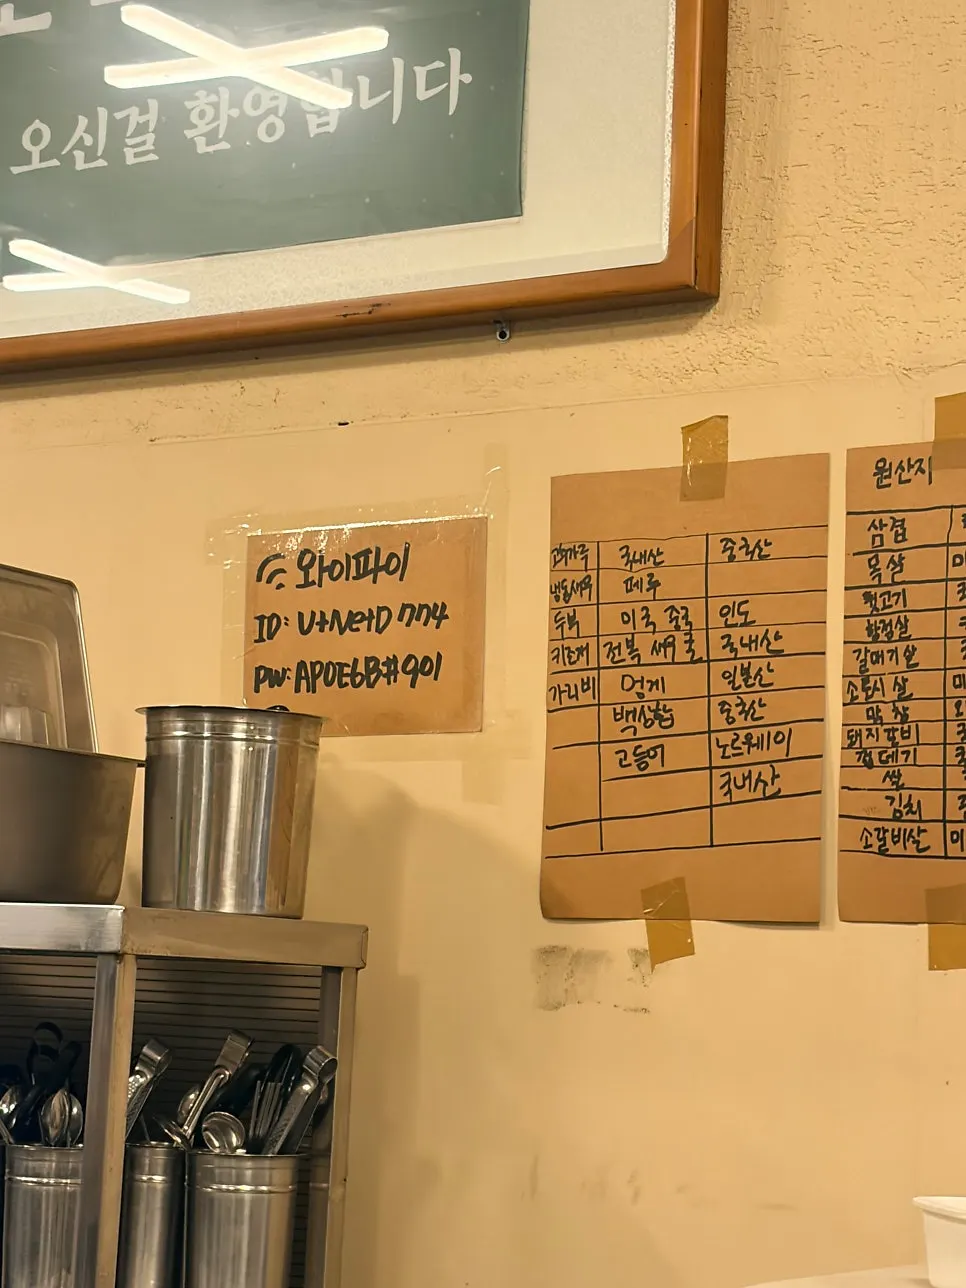 오신걸 환영합니다
와이파이
ID: U+NetD774
PW: AP0E6B#901
고추가루 국내산 중국산
냉동새우 페루
두부 미국 중국 인도
키조개 전복 새우 굴 국내산
가리비 멍게 일본산
백상합 중국산
고등어 노르웨이
국내산
원산지
삼겹
목살
뒷고기
항정살
갈매기살
소토시살
막창
돼지갈비
껍데기
쌀
김치
소갈비살